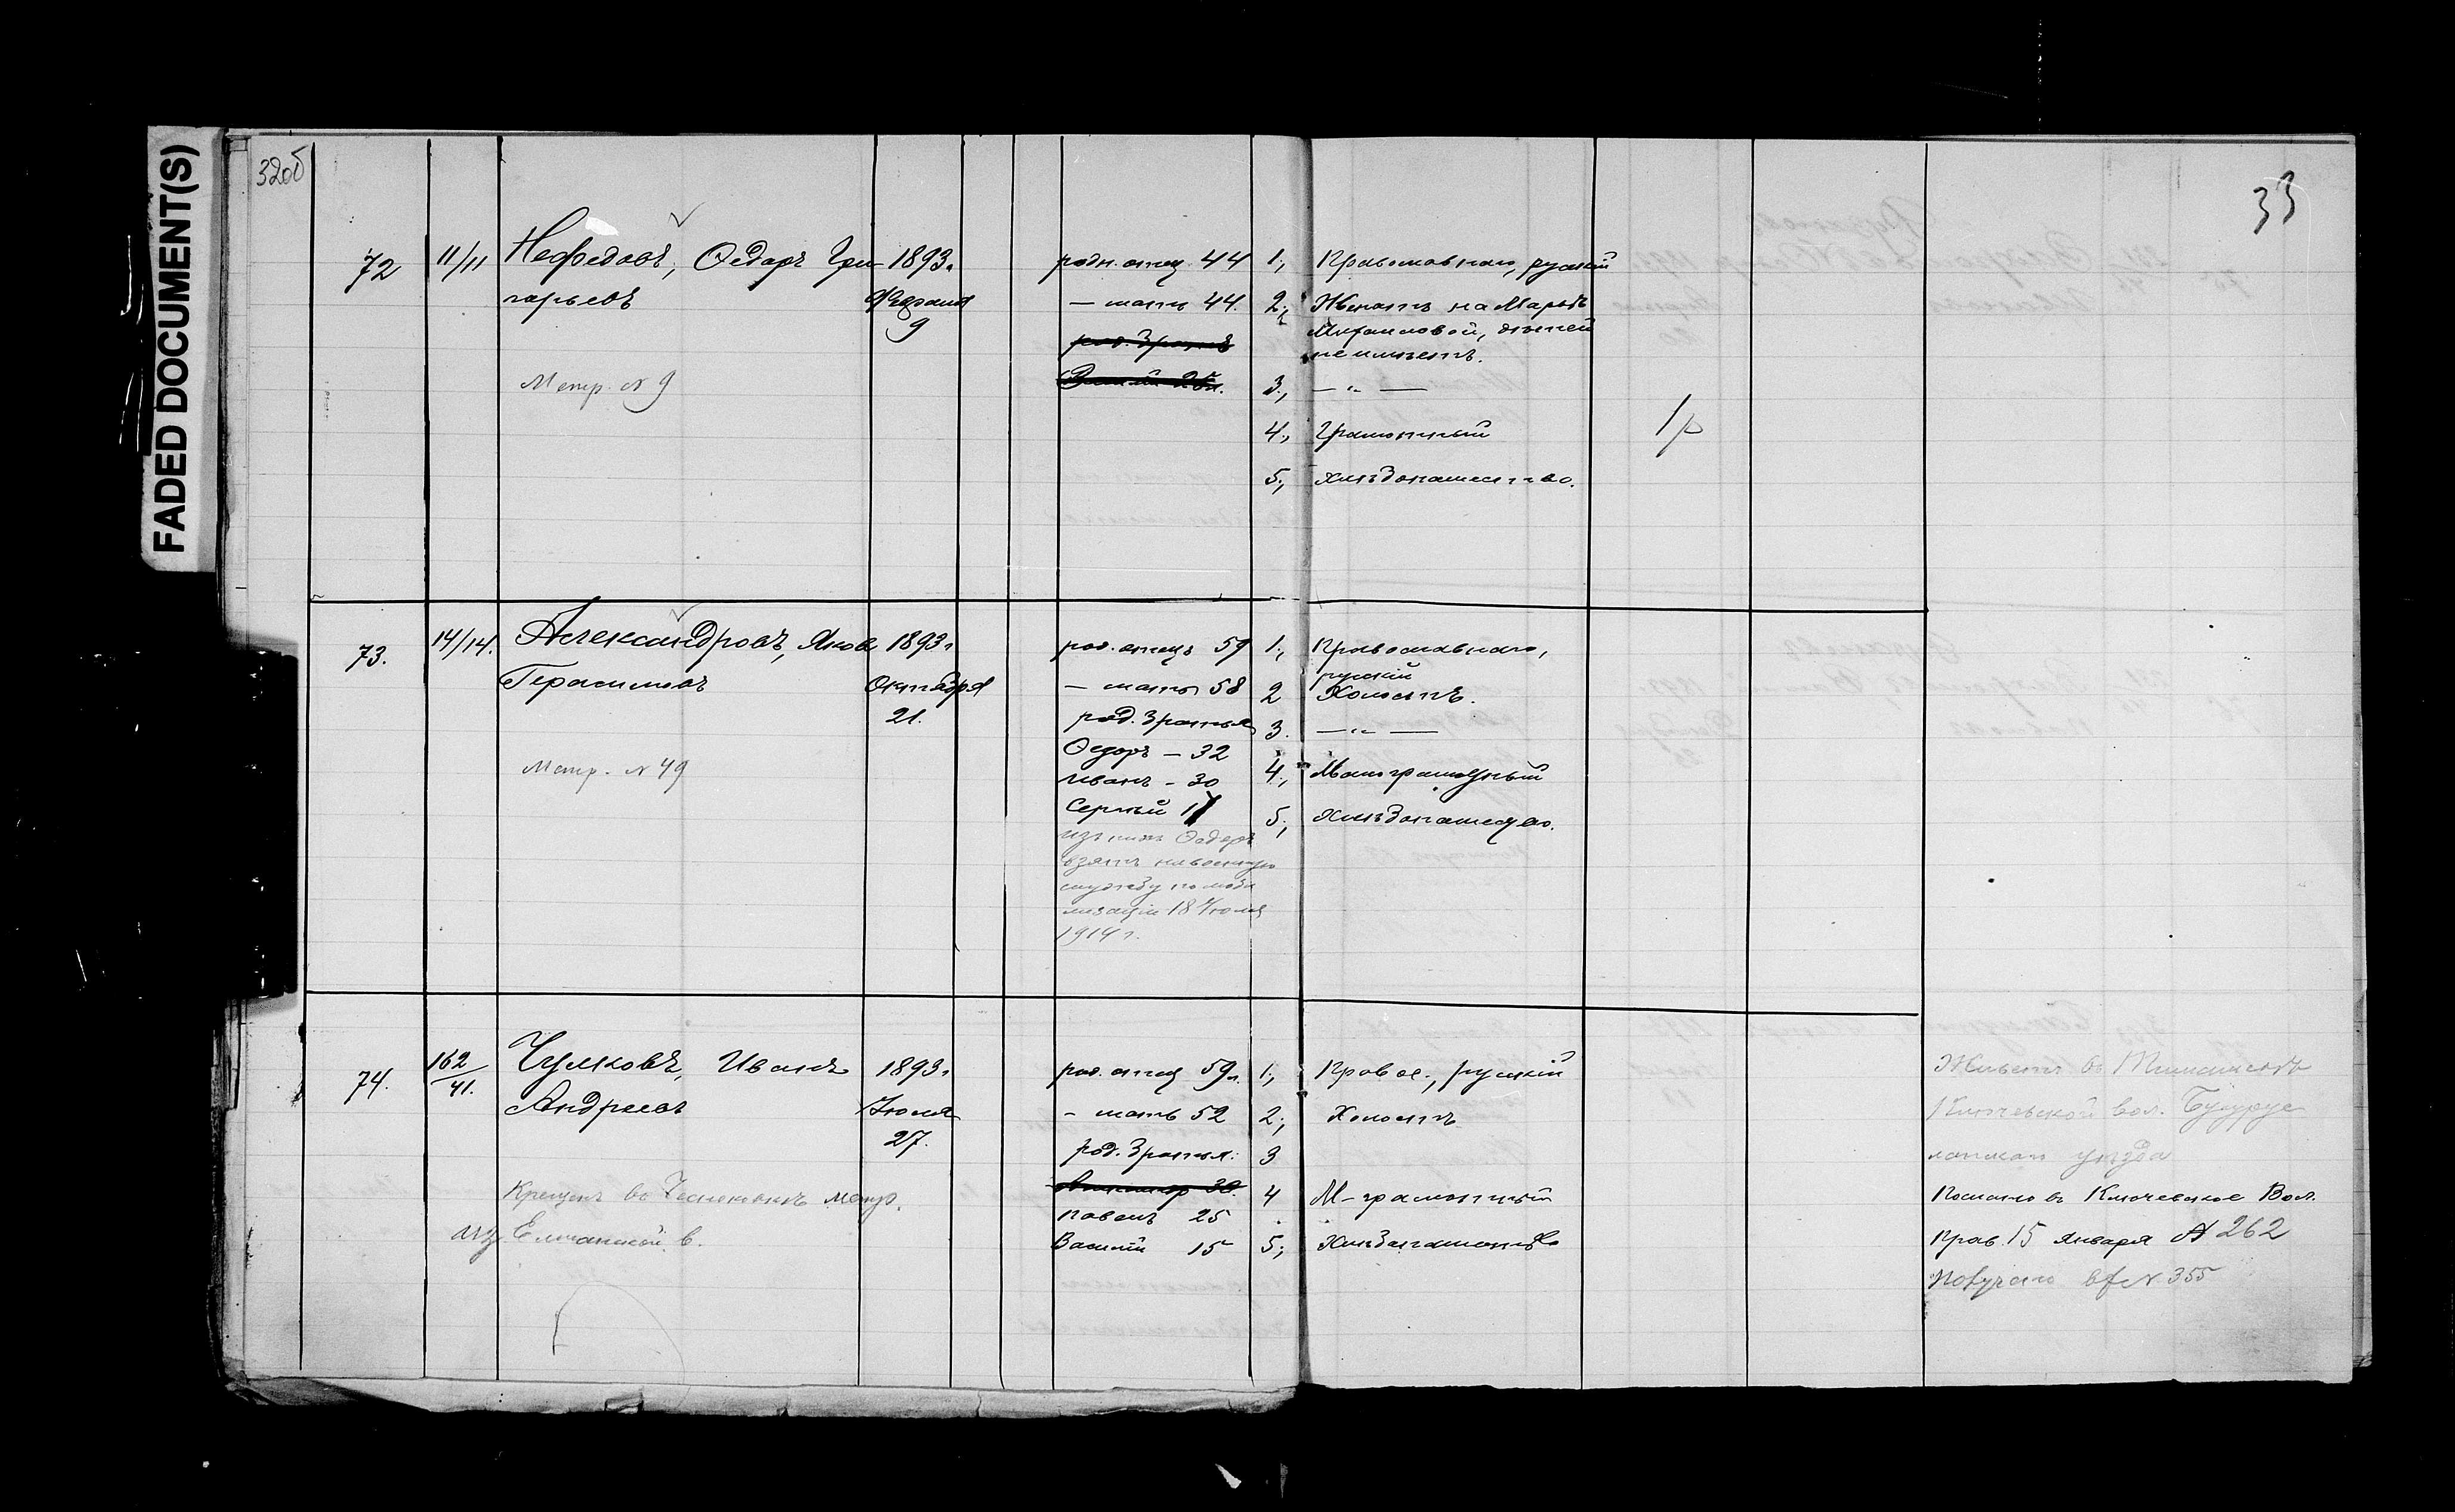 FADED DOCUMENT(S)
32об
33
72
11/11
Нефедовъ, Ѳедоръ Гри-
горьевъ
Метр. N 9
1893.
Февраля
9
родн. отец. 44
— мать 44.
род. братъ
Василій 25 л.
1, Православнаго, русскій
2, Женатъ на Марьѣ
Михайловой, дѣтей
не имѣетъ.
3, — „ —
4, Грамотный
5, Хлѣбопашество.
1р
73.
14/14.
Александровъ, Яковъ
Герасимовъ
Метр. N 49
1893 г
Октября
21.
род. отецъ 59
— мать 58
род. братья
Ѳедоръ — 32
Иванъ — 30
Сергѣй 17
изъ нихъ Ѳедоръ
взятъ на военную
службу по моби
лизаціи 18 Іюля
1914 г.
1, Православнаго,
русскій
2 Холостъ.
3. — „ —
4, Малограмотный
5, Хлѣбопашество.
74.
162/41.
Чулковъ, Иванъ
Андреевъ
Крещенъ во метр.
из Елшанской в.
1893 г
Іюля
27.
род. отец 59 л.
— мать 52
род. братья:
Александр 30.
Павелъ 25
Василій 15
1, Правос., русскій
2, Холостъ
3
4 М-грамотный
5, Хлѣбопашество
Живетъ въ
Ключевской вол. Бугурус
ланскаго уѣзда
Послано въ Ключевское Вол.
Прав. 15 Января N 262
Получено N 355